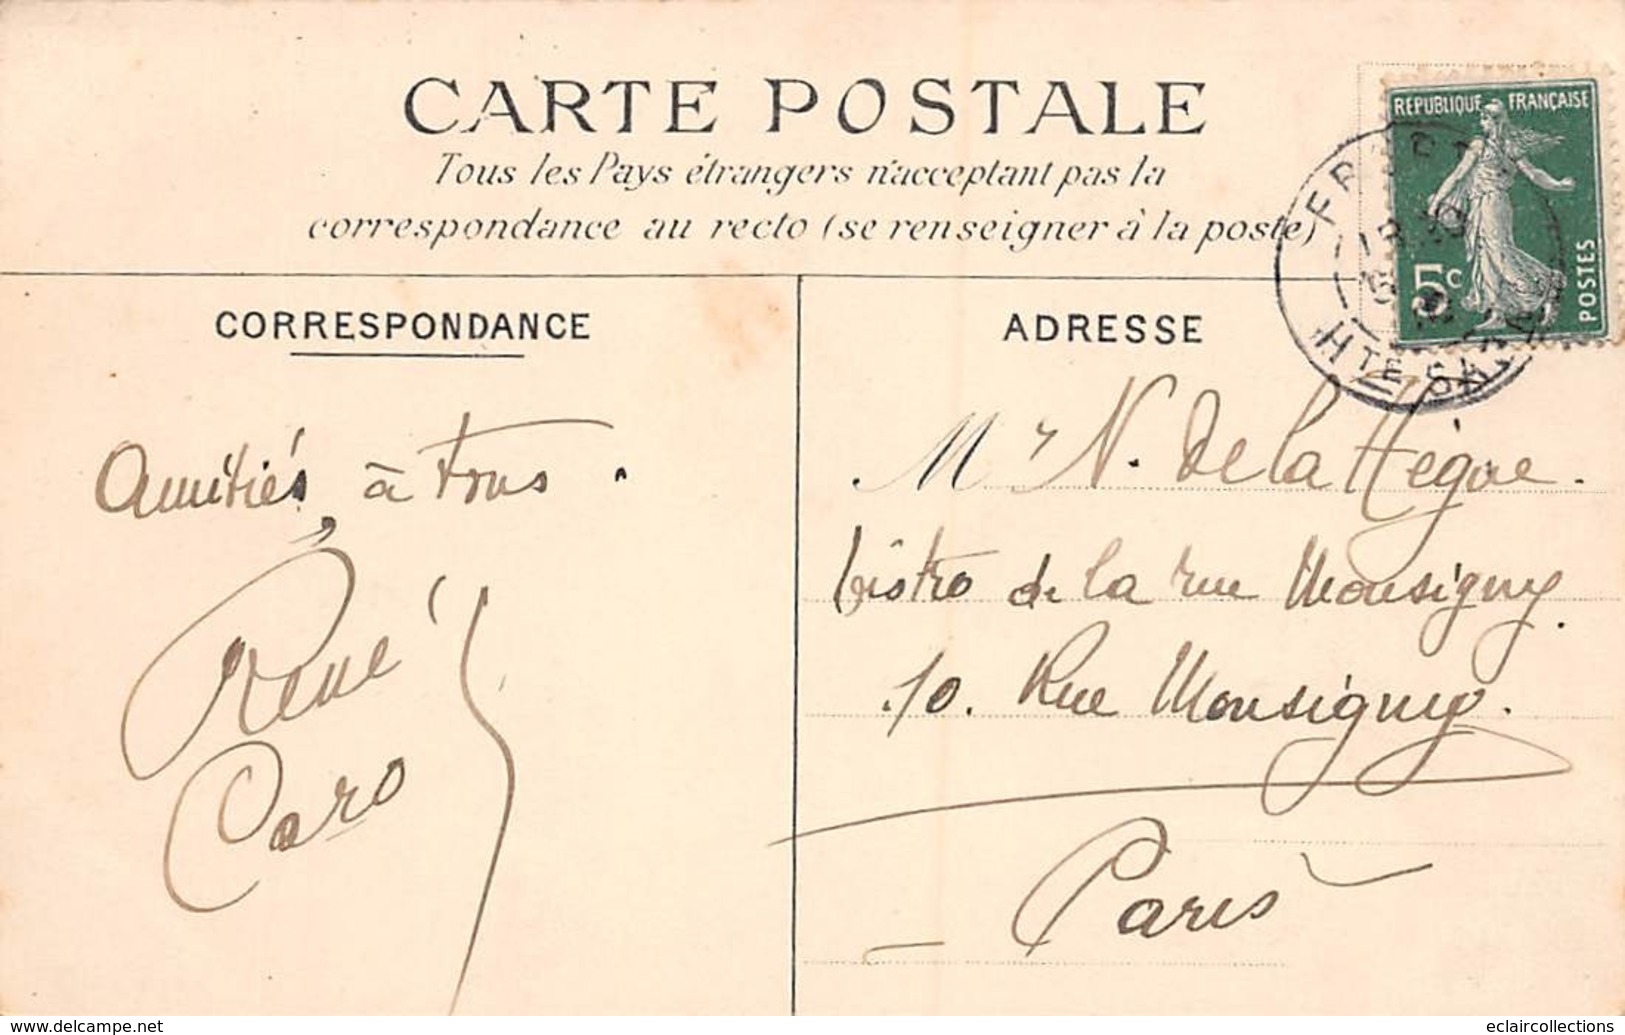 CARTE POSTALE
Tous les Pays étrangers n'acceptant pas la
correspondance au recto (se renseigner à la poste)
REPUBLIQUE FRANÇAISE
5c
POSTES
HTE SA
CORRESPONDANCE
ADRESSE
Amitiés à tous.
René
Caro
Mr N. de la Hègue.
bistro de la rue Monsigny.
10. Rue Monsigny.
Paris
www.delcampe.net
eclaircollections